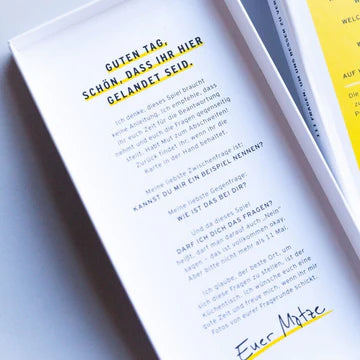 GUTEN TAG,
SCHÖN, DASS IHR HIER
GELANDET SEID.
Ich denke, dieses Spiel braucht
keine Anleitung. Ich empfehle, dass
ihr euch Zeit für die Beantwortung
nehmt und euch die Fragen gegenseitig
stellt. Habt Mut zum Abschweifen!
Zurück findet ihr, wenn ihr die
Karte in der Hand behaltet.
Meine liebste Zwischenfrage ist:
KANNST DU MIR EIN BEISPIEL NENNEN?
Meine liebste Gegenfrage:
WIE IST DAS BEI DIR?
Und da dieses Spiel
DARF ICH DICH DAS FRAGEN?
heißt, darf man darauf auch „Nein“
sagen – das ist vollkommen okay.
Aber bitte nicht mehr als 11 Mal.
Ich glaube, der beste Ort, um
sich diese Fragen zu stellen, ist der
Küchentisch. Ich wünsche euch eine
gute Zeit und freue mich, wenn ihr mir
Fotos von eurer Fragerunde schickt.
Euer Matze
WELC
AUF
Die